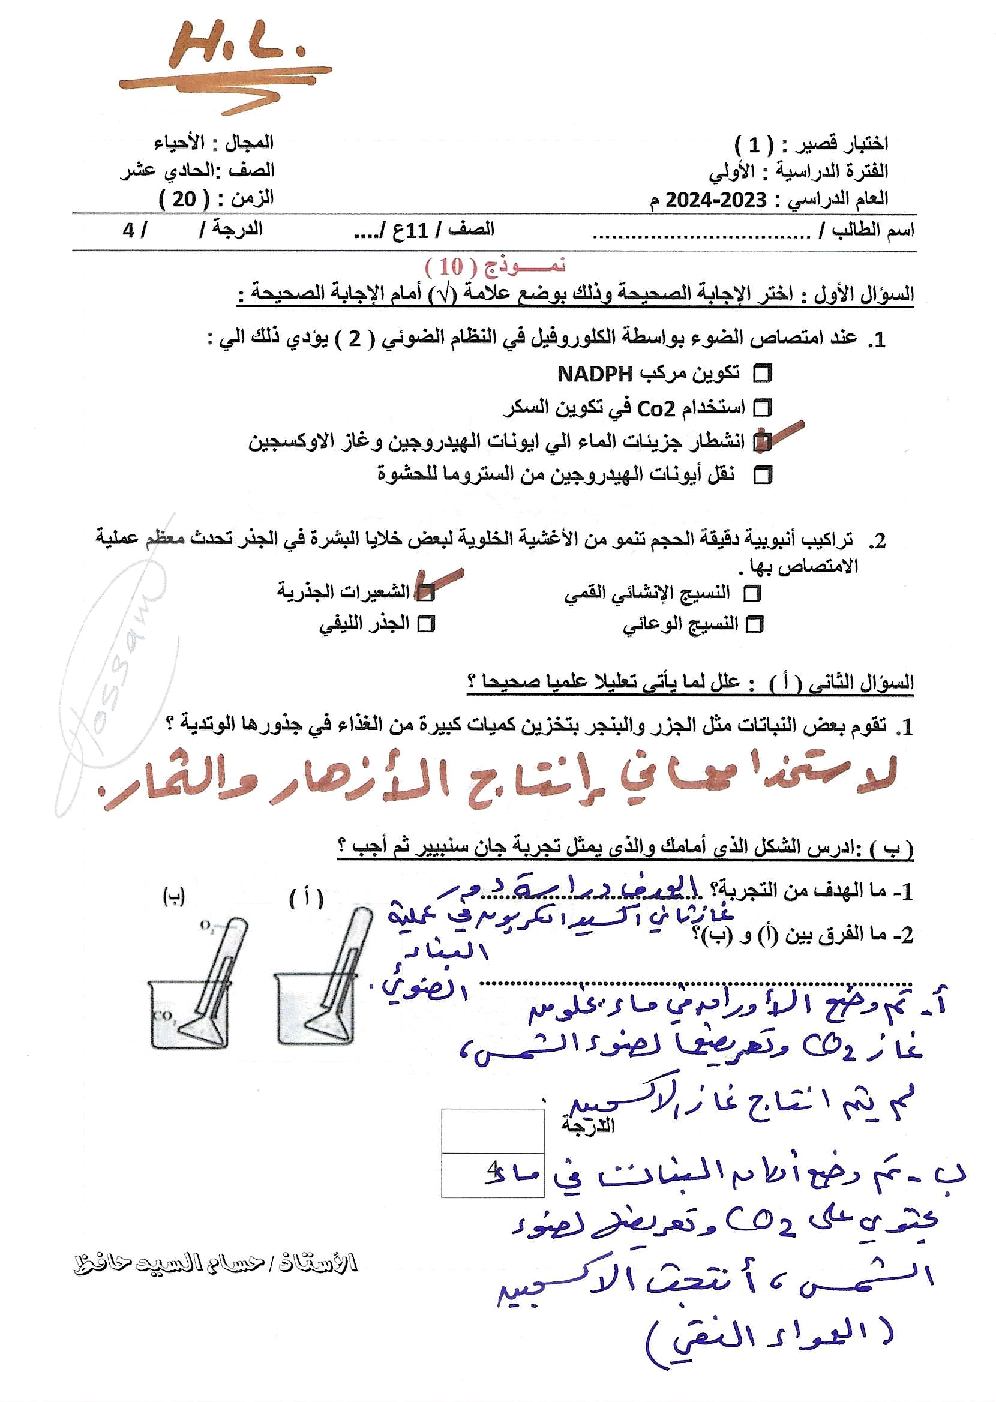 H.L.
اختبار قصير : ( 1 )
المجال : الأحياء
الفترة الدراسية : الأولي
الصف :الحادي عشر
العام الدراسي : 2023-2024 م
الزمن : ( 20 )
اسم الطالب / ................................ الصف / 11ع /.... الدرجة / / 4
نمـــوذج ( 10 )
السؤال الأول : اختر الإجابة الصحيحة وذلك بوضع علامة (√) أمام الإجابة الصحيحة :
1. عند امتصاص الضوء بواسطة الكلوروفيل في النظام الضوئي ( 2 ) يؤدي ذلك الي :
تكوين مركب NADPH
استخدام Co2 في تكوين السكر
انشطار جزيئات الماء الي ايونات الهيدروجين وغاز الاوكسجين
نقل أيونات الهيدروجين من الستروما للحشوة
2. تراكيب أنبوبية دقيقة الحجم تنمو من الأغشية الخلوية لبعض خلايا البشرة في الجذر تحدث معظم عملية
الامتصاص بها .
النسيج الإنشائي القمي
الشعيرات الجذرية
النسيج الوعائي
الجذر الليفي
Hossam
السؤال الثاني ( أ ) : علل لما يأتي تعليلا علميا صحيحا ؟
1. تقوم بعض النباتات مثل الجزر والبنجر بتخزين كميات كبيرة من الغذاء في جذورها الوتدية ؟
لاستخدامها في إنتاج الأزهار والثمار.
( ب ) :ادرس الشكل الذي أمامك والذي يمثل تجربة جان سنيبير ثم أجب ؟
1- ما الهدف من التجربة؟ الهدف دراسة دور
غاز ثاني أكسيد الكربون في عملية
2- ما الفرق بين (أ) و (ب)؟
البناء
الضوئي.
( أ )
(ب)
O2
CO2
أ- تم وضع الأوراق في ماء يخلو من
غاز CO2 وتعريضها لضوء الشمس،
لم يتم انتاج غاز الاكسجين.
الدرجة
4
ب- تم وضع أوراق النبات في ماء
يحتوي على CO2 وتعريضها لضوء
الشمس، أنتجت الاكسجين
(الهواء النقي)
الأستاذ / حسام السيد حافظ